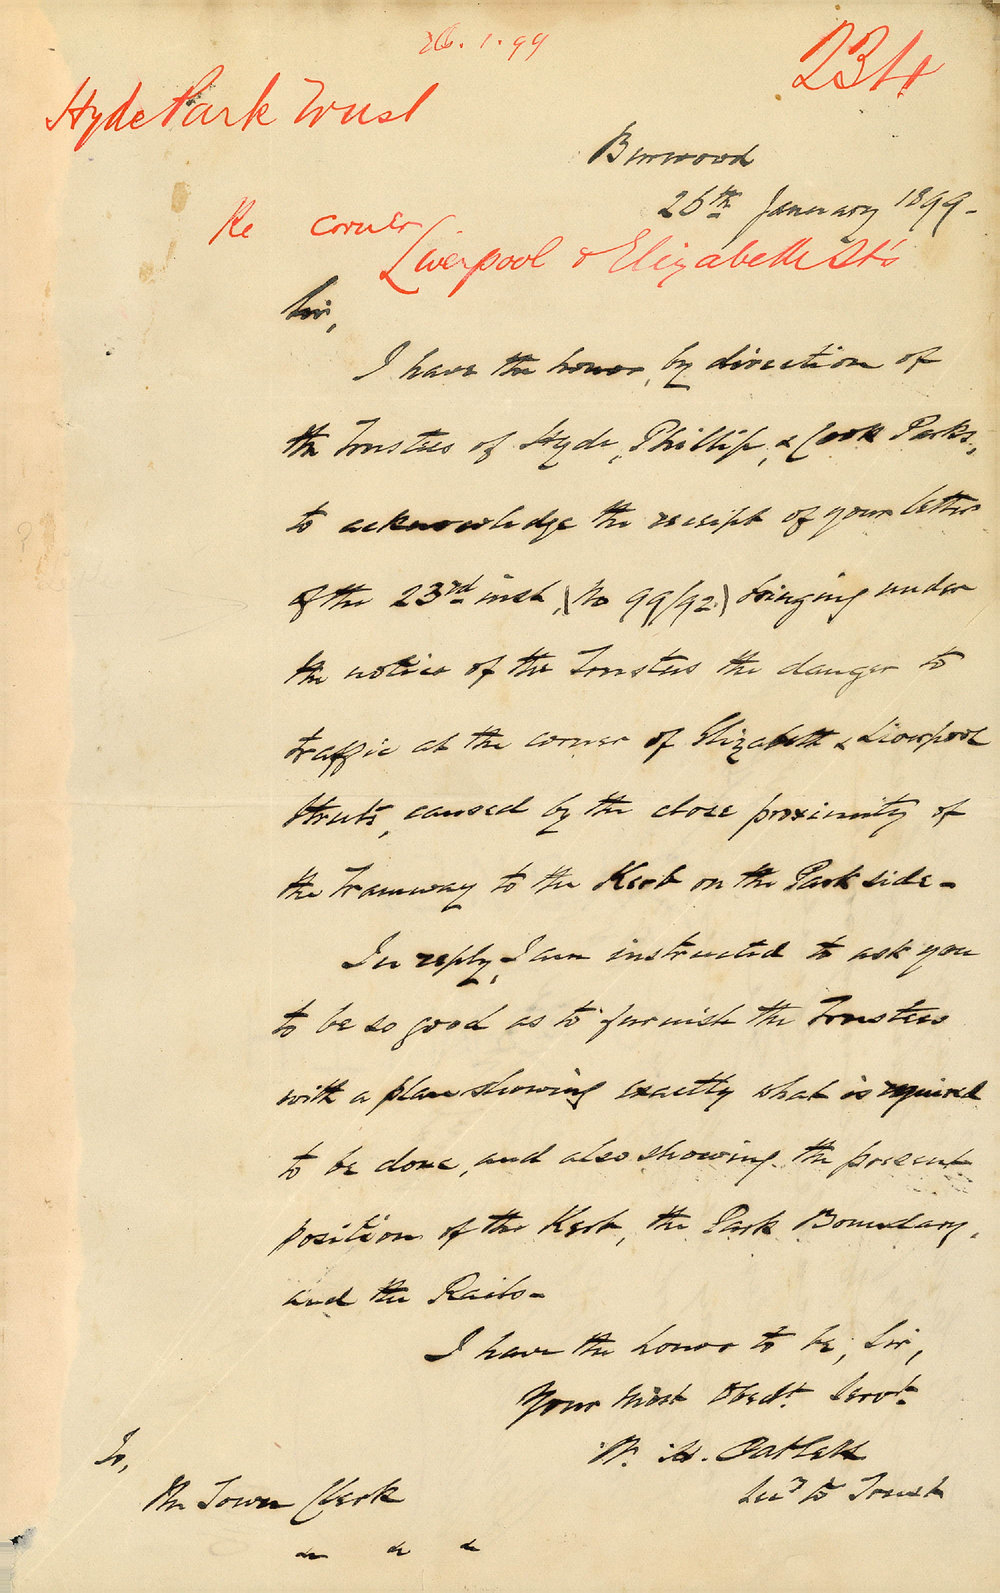 26.1.99
234
Hyde Park Trust
Burwood
25th January 1899-
Re corner
Liverpool & Elizabeth Sts
Sir,
I have the honor, by direction of
the Trustees of Hyde, Phillip, & Cook Parks,
to acknowledge the receipt of your letter
of the 23rd inst, (No 99/92) bringing under
the notice of the Trustees the danger to
traffic at the corner of Elizabeth & Liverpool
Streets, caused by the close proximity of
the Tramway to the Kerb on the Park side-
In reply, I am instructed to ask you
to be so good as to furnish the Trustees
with a plan showing exactly what is required
to be done, and also showing the present
position of the Kerb, the Park Boundary,
and the Rails-
I have the honor to be, Sir,
Your Most Obedt. Servt.
W. H.
to Trust
To,
The Town Clerk